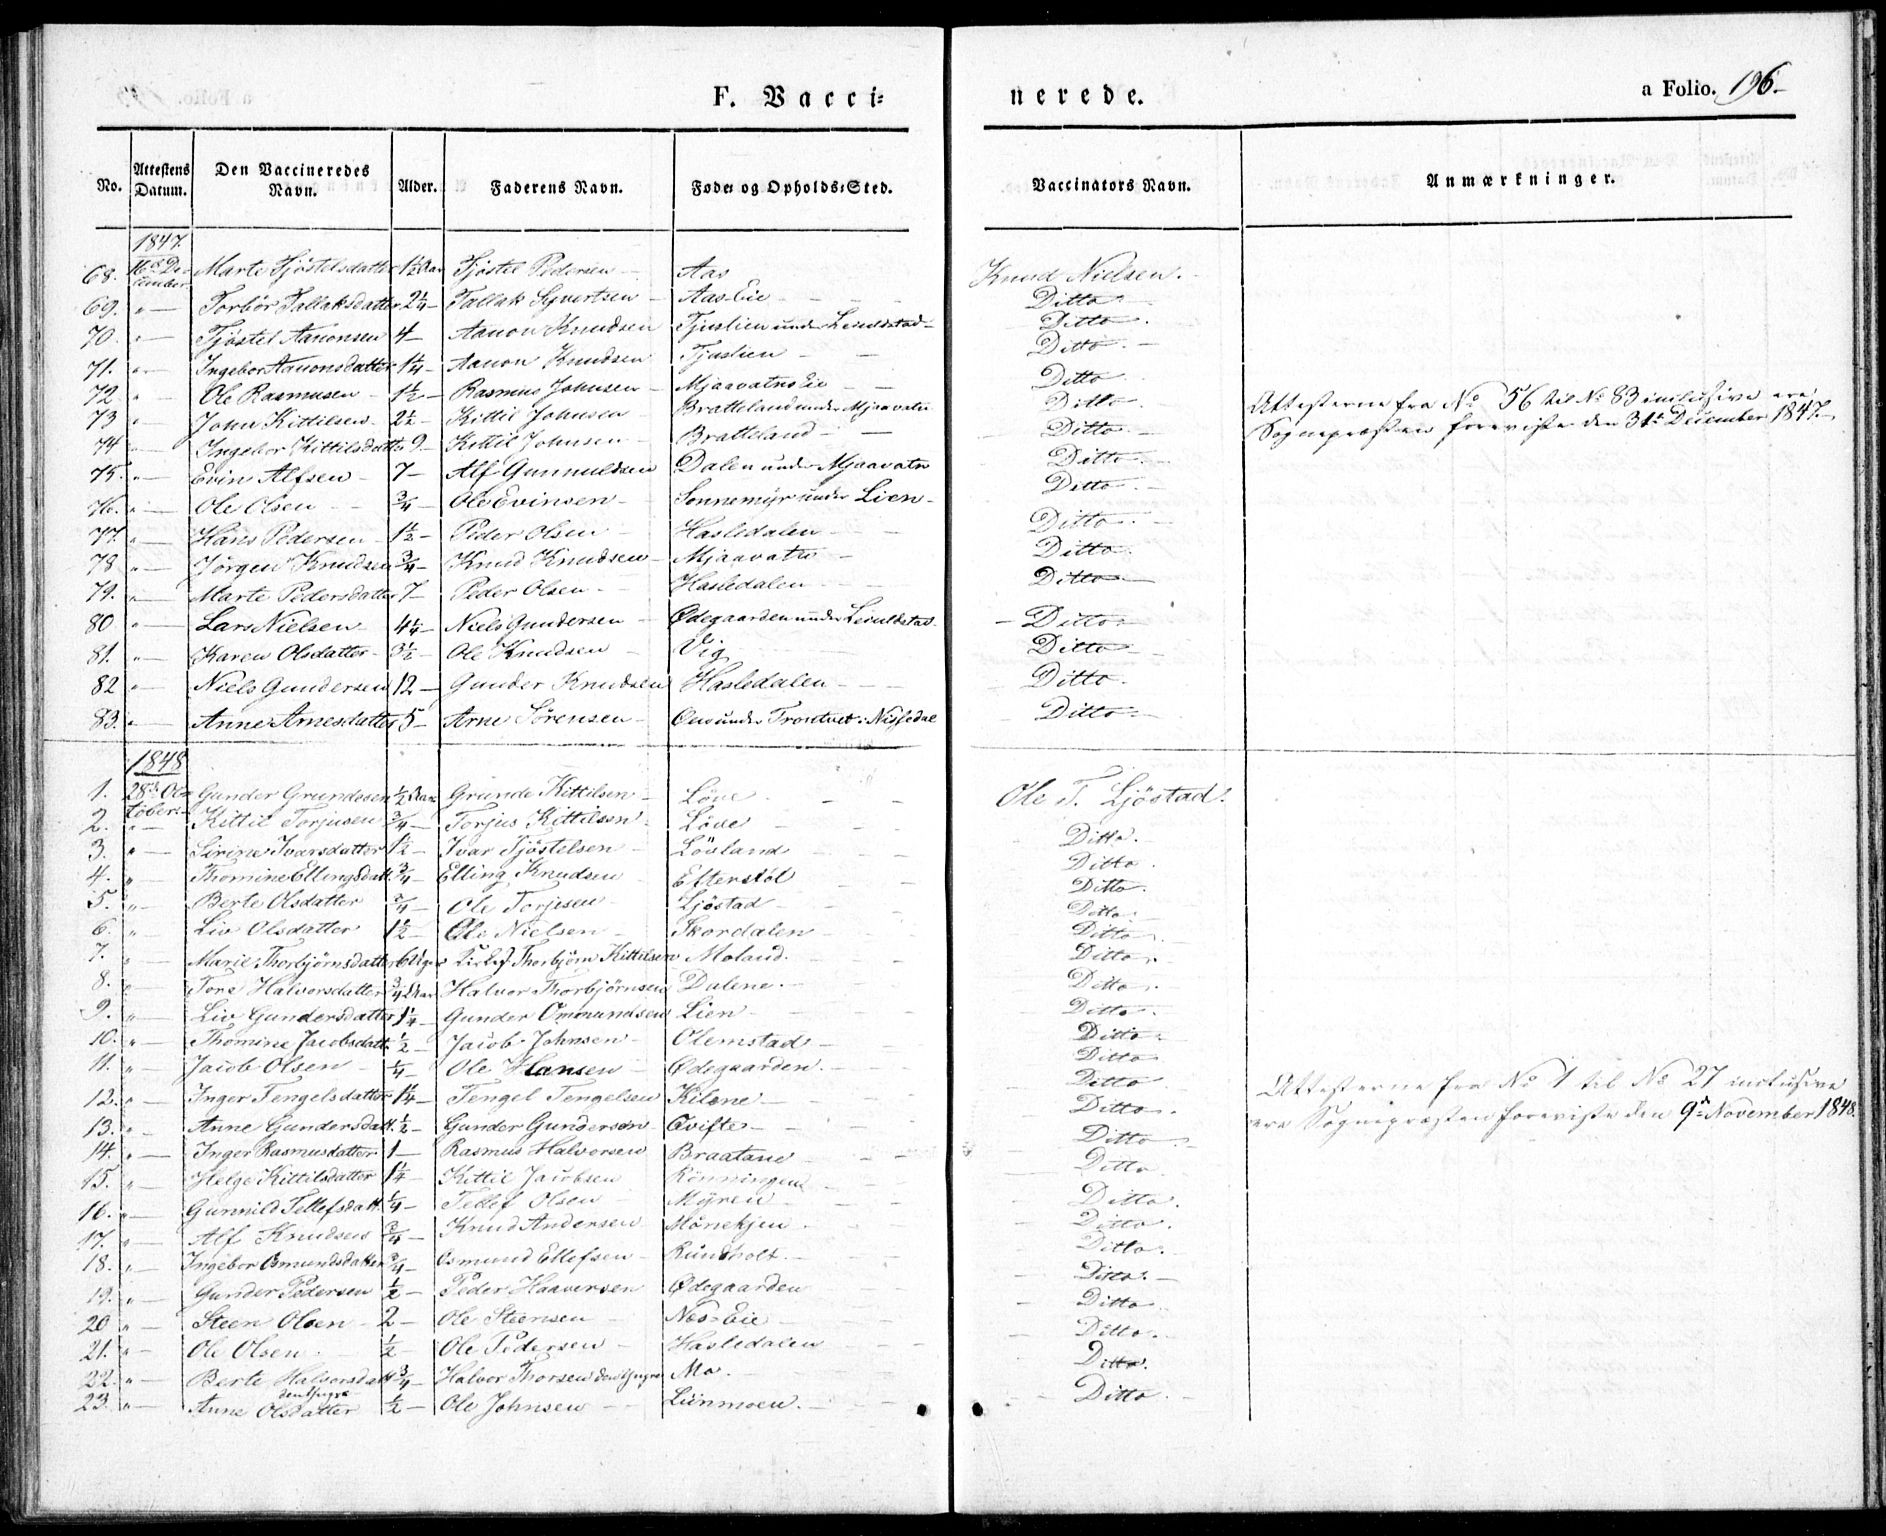 F. Vacci=
nerede.
a Folio. 196.
No.
Attestens Datum.
Den Vaccineredes Navn.
Alder.
Faderens Navn.
Føde og Opholds-Sted.
Vaccinators Navn.
Anmærkninger.
1847.
68. 16de December Marte Tjöstelsdatter 1½ Aar Tjöstel Pedersen Aas Knud Nielsen.
69. " Torbör Tallaksdatter 2¼ Tallak Syvertsen Aas-Eie Ditto
70. " Tjöstel Aanonsen 4 Aanon Knudsen Tjuslien under Ditto.
71. " Ingebor Aanonsdatter 1¼ Aanon Knudsen Tjuslien Ditto.
72 " Ole Rasmusen 1½ Rasmus Johnsen Mjaavatns Eie Ditto
73 " John Kittilsen 2½ Kittil Johnsen Bratteland under Mjaavatn Ditto.
74 " Ingebor Kittilsdatter 9 Kittil Johnsen Bratteland Ditto.
75. " Evin Alfsen 7 Alf Gunnuldsen Dalen under Mjaavatn Ditto.
76. " Ole Olsen ¾ Ole Evinsen Sonnemyr under Lien Ditto.
77. " Hans Pedersen 1½ Peder Olsen Hasledalen Ditto.
78 " Jörgen Knudsen ¾ Knud Knudsen Mjaavatn Ditto.
79. " Marte Pedersdatter 7 Peder Olsen Hasledalen Ditto
80 " Lars Nielsen 4¼ Niels Gundersen Ødegaarden under Ditto.
81. " Karen Olsdatter 3½ Ole Knudsen Vig Ditto
82 " Niels Gundersen 12 Gunder Knudsen Hasledalen Ditto.
83. " Anne Arnesdatter 5 Arne Sörensen under Nissedal Ditto.
Attesterne fra No 56 til No 83 inclusive ere
Sognepræsten foreviste den 31te December 1847.
1848
1. 28de October Gunder Grundesen ½ Aar Grunde Kittilsen Löve Ole T. Ljöstad.
2. " Kittil Torjusen ¾ Torjus Kittilsen Löve Ditto.
3. " Sirine Ivarsdatter 1½ Ivar Tjöstelsen Lövland Ditto.
4. " Thomine Ellingsdatt. ¾ Elling Knudsen Efterstöl Ditto.
5. " Berte Olsdatter ¾ Ole Torjesen Ljöstad Ditto.
6. " Liv Olsdatter 1½ Ole Nielsen Skordalen Ditto.
7. " Marie Thorbjørnsdatter 6 Uger Thorbjørn Kittilsen Moland. Ditto.
8. " Tore Halvorsdatter ¾ Aar Halvor Thorbjørnsen Dalene. Ditto.
9. " Liv Gundersdatter 1¼ Gunder Ommundsen Lien Ditto.
10. " Thomine Jacobsdatt. ½ Jacob Johnsen Olemstad Ditto.
11. " Jacob Olsen ¼ Ole Hansen Ødegaarden. Ditto
12. " Inger Tengelsdatter 1¼ Tengel Tengelsen Kilene Ditto
13. " Anne Gundersdatt. ½ Gunder Gundersen Qvifte Ditto.
14. " Inger Rasmusdatter 1 Rasmus Halvorsen Braatane Ditto.
15. " Helge Kittilsdatter 1¼ Kittil Jacobsen Rönningene Ditto.
16. " Gunnild Tellefsdatt. ¼ Tellef Olsen Myren Ditto.
17. " Alf Knudsen ¾ Knud Andersen Mönekjen Ditto.
18. " Ingebor Osmundsdatter ¾ Osmund Ellefsen Rundholt. Ditto.
19. " Gunder Pedersen ½ Peder Haaversen Ødegaarden Ditto.
20 " Steen Olsen 2 Ole Steensen Nes-Eie Ditto.
21. " Ole Olsen ½ Ole Pedersen Hasledalen Ditto.
22. " Berte Halvorsdatt. ¾ Halvor Thorsen den Yngre Mo. Ditto.
23. " Anne Olsdatter den Yngre ½ Ole Johnsen Liinmoen. Ditto
Attesterne fra No 1 til No 27 inclusive
ere Sognepræsten foreviste den 9de November 1848.